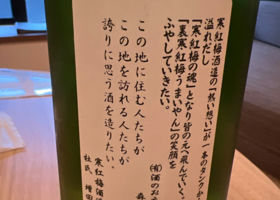 寒紅梅酒造の『熱い想い』が一本のタンクか
溢れだし
『寒紅梅の魂』となり皆の元へ飛んでいく。
『裏寒紅梅うまいやん』の笑顔を
ふやしていきたい。
(有)酒のお
森
この地に住む人たちが
この地を訪れる人たちが
誇りに思う酒を造りたい。
寒紅梅酒
杜氏 増田